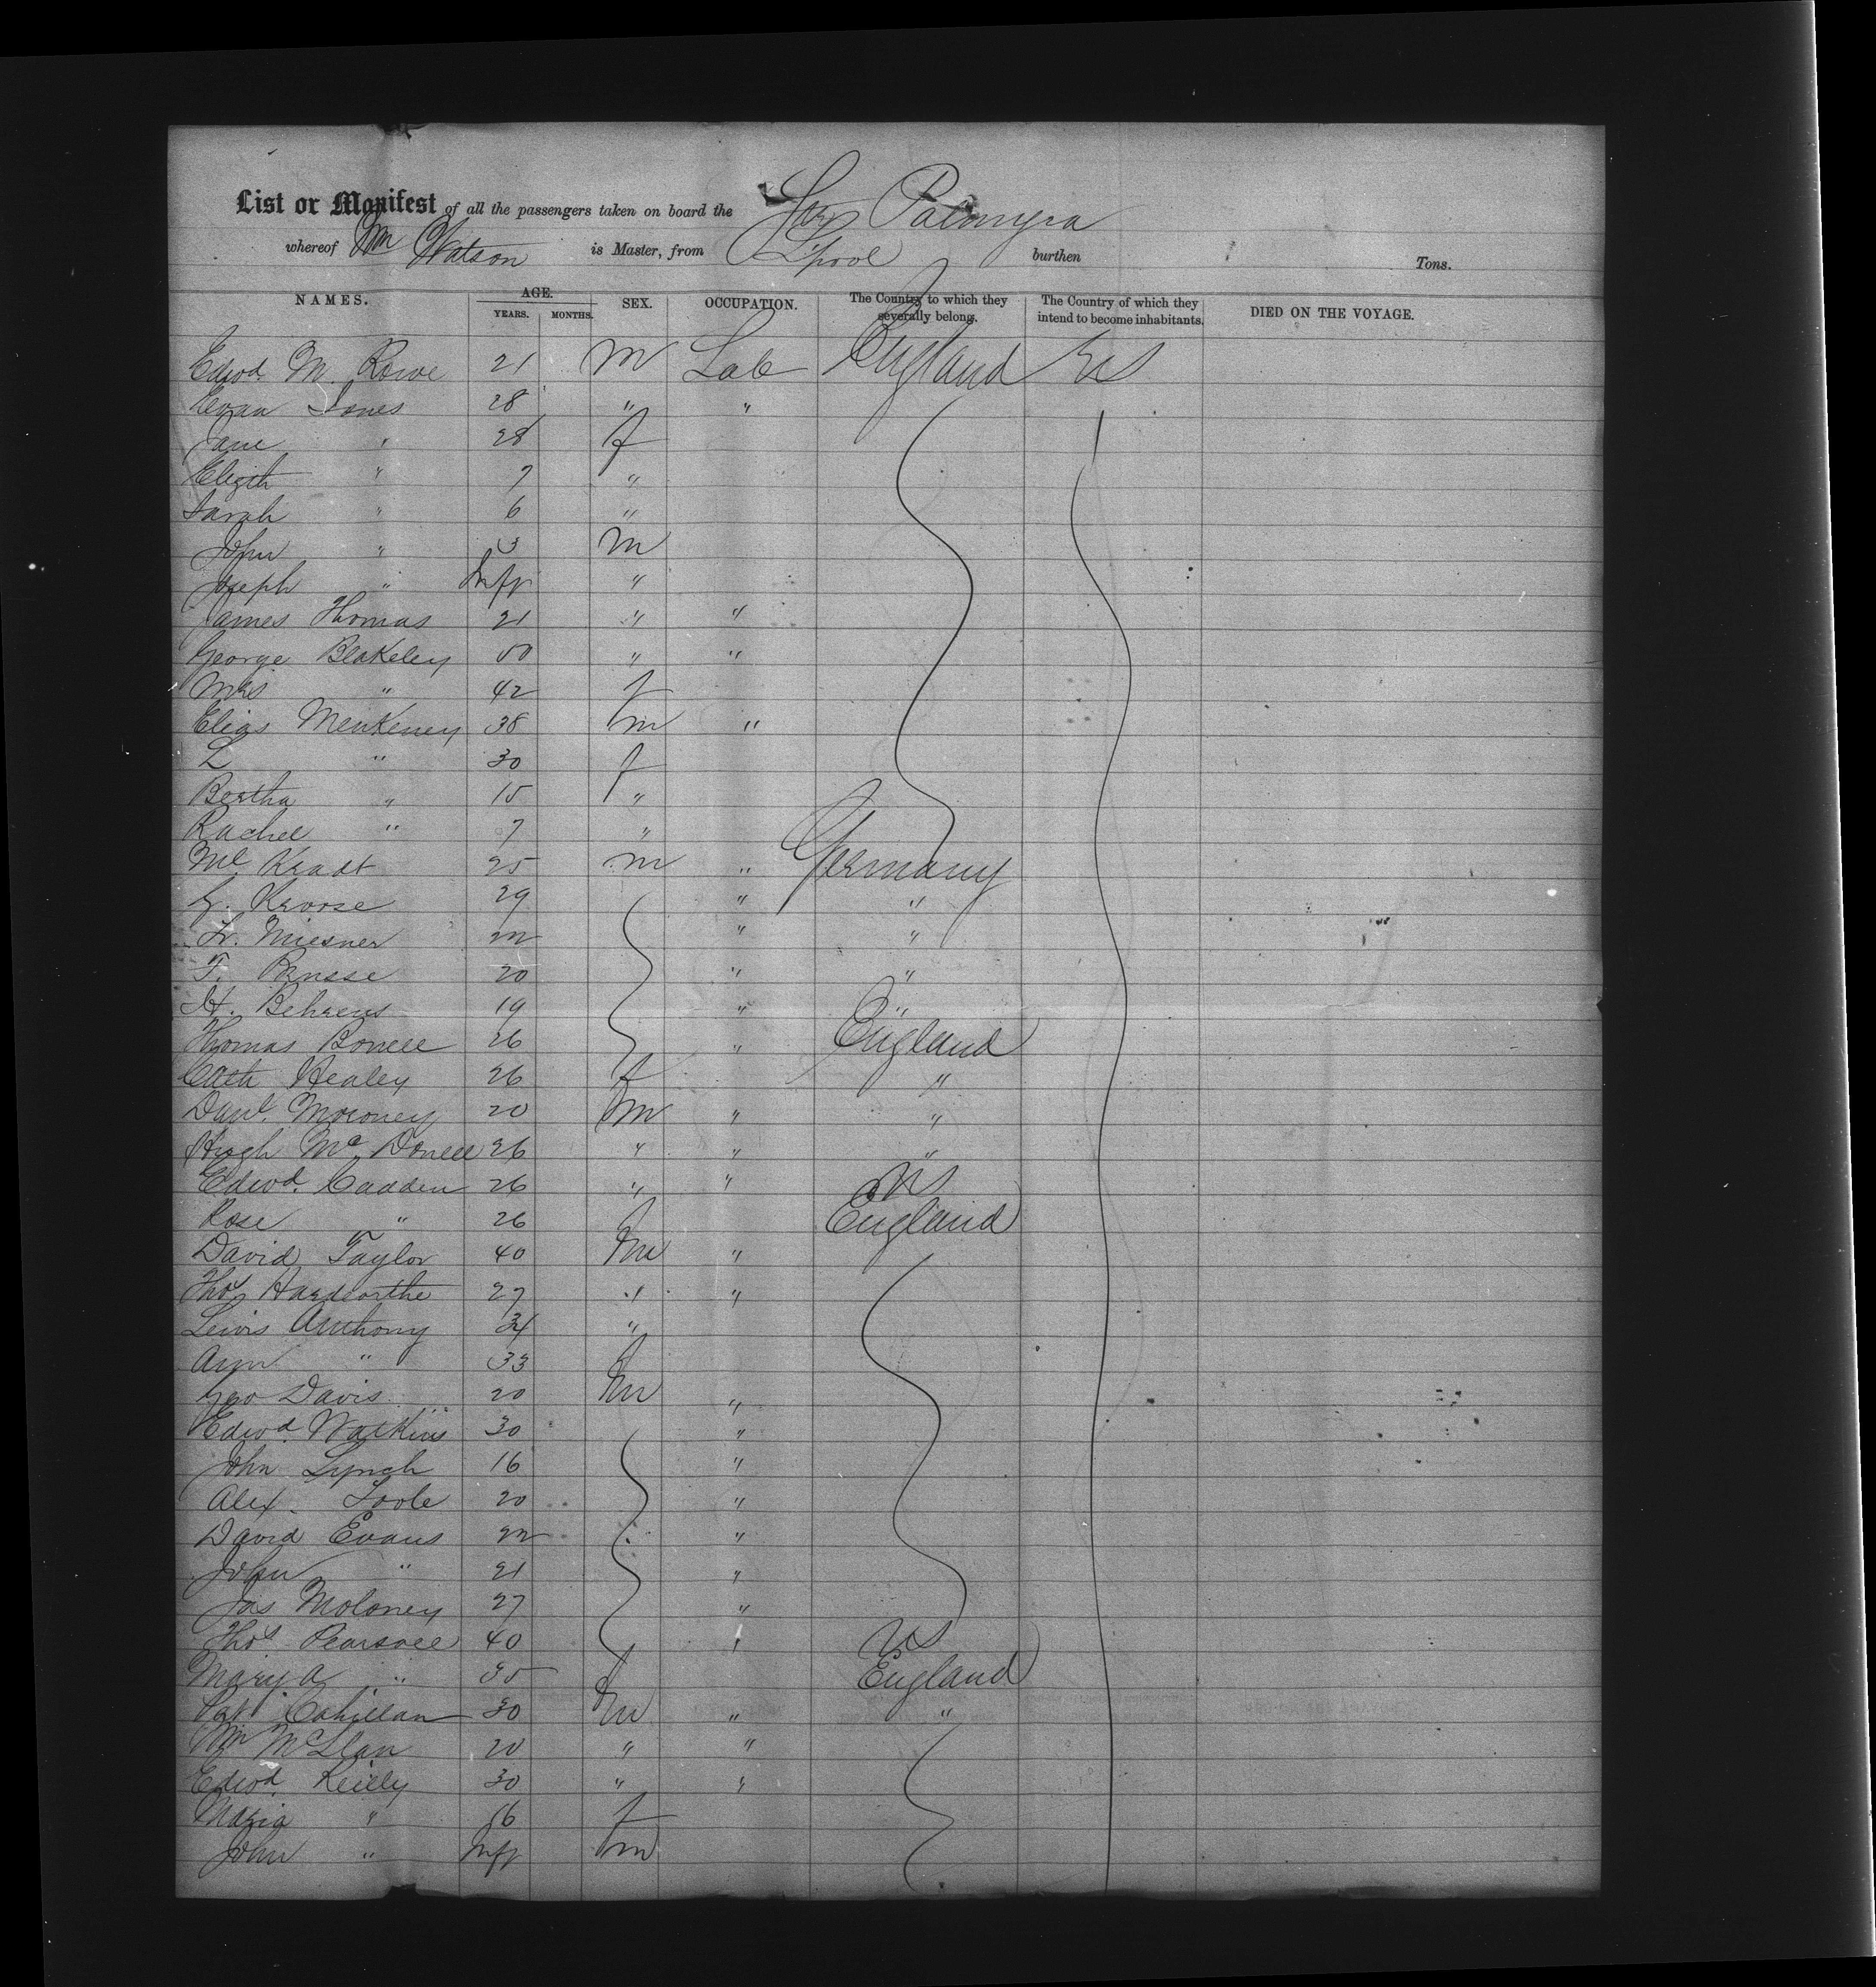 List or Manifest of all the passengers taken on board the Palmyra
whereof Wm Watson is Master, from L'pool burthen Tons.
NAMES. AGE. YEARS. MONTHS. SEX. OCCUPATION. The Country to which they severally belong. The Country of which they intend to become inhabitants. DIED ON THE VOYAGE.
Edwd. M. Rowe 21 m Lab England US
Evan Jones 28 " "
Jane " 28 f
Elizth " 7 "
Sarah " 6 "
John " 3 m
Joseph " Inft "
James Thomas 21 " "
George Blakeley 50 " "
Mrs " 42 f
Elias Menkeney 38 m "
L " 30 f
Bertha " 15 "
Rachel " 7 "
Ml Kradt 25 m " Germany
G. Kroose 29 " "
Fr. Miesner 22 " "
F. 20 " "
H. Behrens 19 " "
Thomas Bonell 26 " England
Cath Healey 26 f "
Danl. Moroney 20 m " "
Hugh Mc Donell 26 " " "
Edwd. Cadden 26 " " US
Rose " 26 f England
David Taylor 40 m "
Thos 27 " "
Lewis Anthony 34 "
Ann " 33 f
Geo Davis 20 m "
Edwd. Watkins 30 "
John Lynch 16 "
Alex. Toole 20 "
David Evans 22 "
John " 21 "
Jas Moloney 27 "
Thos Pearsall 40 " US
Mary A " 35 f England
Pat Cahillan 30 m " "
Wm 20 " "
Edwd. Reilly 30 " "
Maria " f
John " Inft m